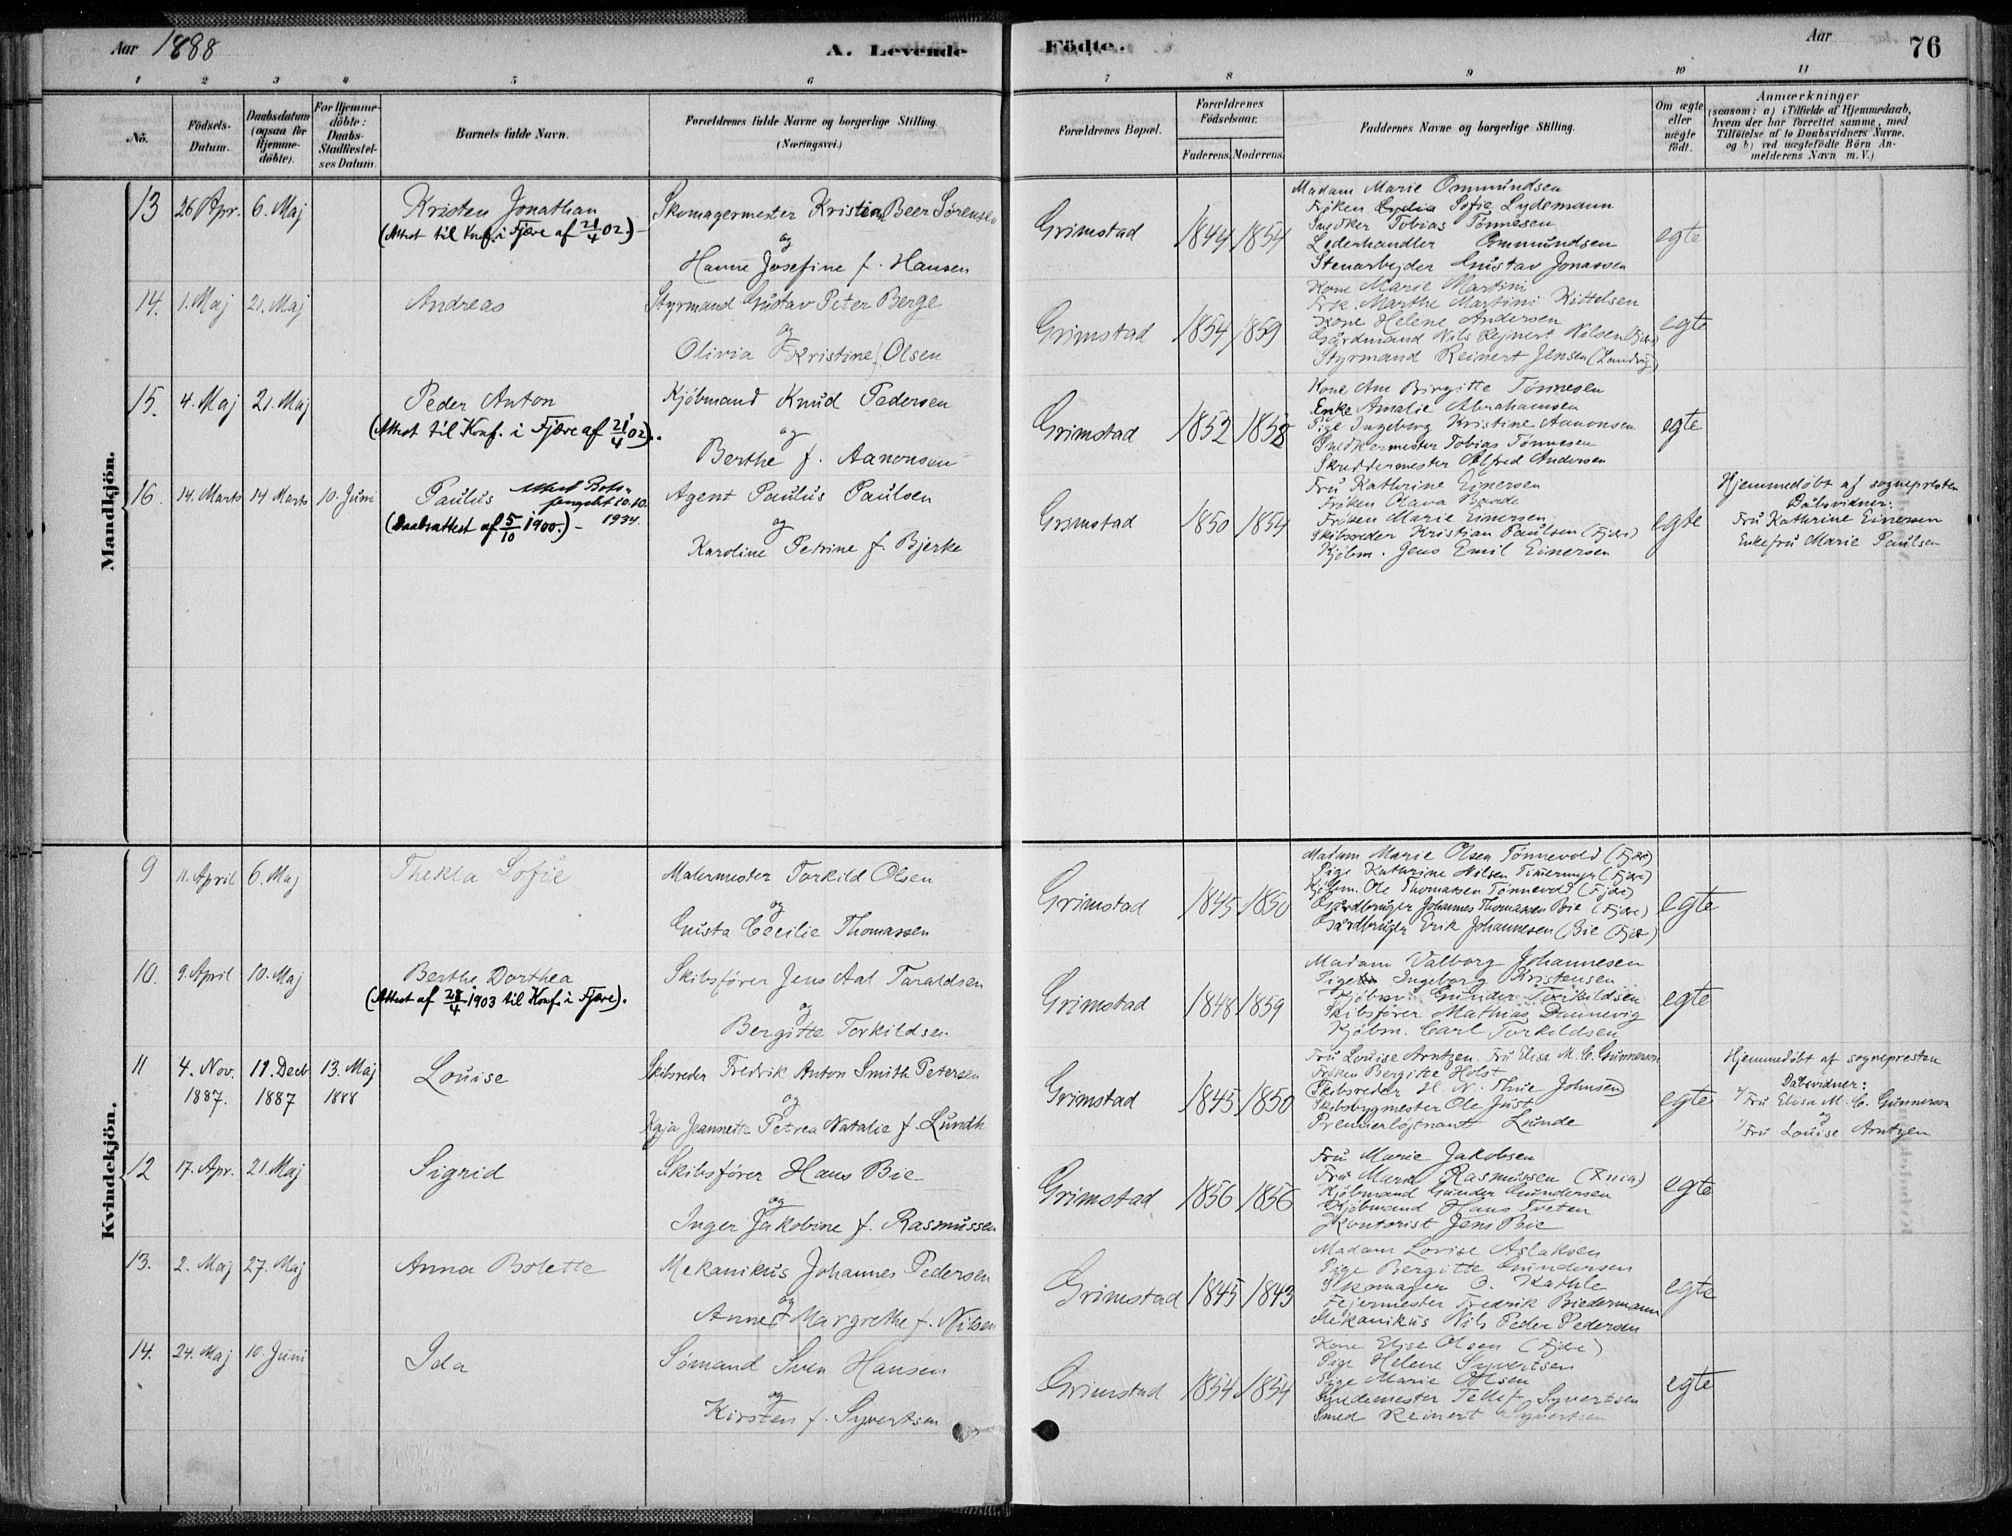 Aar 1888
A. Levende
Födte.
Aar
76
1 2 3 4 5 6 7 8 9 10 11
No.
Födsels-Datum.
Daabsdatum (ogsaa for Hjemme-döbte).
For Hjemme-döbte: Daabs-Stadfæstel-ses Datum.
Barnets fulde Navn.
Forældrenes fulde Navne og borgerlige Stilling.
(Næringsvei.)
Forældrenes Bopæl.
Forældrenes Födselsaar.
Faderens. Moderens.
Faddernes Navne og borgerlige Stilling.
Om ægte eller uægte födt.
Anmærkninger
(saasom: a) i Tilfælde af Hjemmedaab, hvem der har forrettet samme, med Tilföielse af to Daabsvidners Navne, og b) ved uægtefödte Börn Anmelderens Navn m. V.)
Mandkjön.
13 26 Apr. 6. Maj
Kristen Jonathan
(Attest til Konf. i Fjære af 21/4 02.)
Skomagermester Kristen Beer Sørensen
og
Hanne Josefine f. Hansen
Grimstad 1844 1854
Madam Marie Ommundsen
Frøken Lydia Sofie Lydemann
Snedker Tobias Tønnesen
Læderhandler Ommundsen
Stenarbejder Gustav Jonassen
egte
14. 1. Maj 21. Maj
Andreas
Styrmand Gustav Peter Berge
og
Olivia Kristine Olsen
Grimstad 1854 1859
Kone Marie Martini
Frk. Marthe Martini Kittelsen
Kone Helene Andersen
Gårdmand Nils Rejnert Nilsen (Fjære)
Styrmand Reinert Jensen (Landvig)
egte
15. 4. Maj 21. Maj
Peder Anton
(Attest til Konf. i Fjære af 21/4 02).
Kjøbmand Knud Pedersen
og
Berthe f. Aanonsen
Grimstad 1852 1858
Kone Ane Birgitte Tønnesen
Enke Amalie Abrahamsen
Pige Ingeborg Kristine Aanonsen
Snedkermester Tobias Tønnesen
Skreddermester Alfred Andersen
egte
16. 14. Marts 14 Marts 10. Juni
Paulus
(Daabsattest af 5/10 1900.)
10.10. 1934.
Agent Paulus Paulsen
og
Karoline Petrine f. Bjerke
Grimstad 1850 1854
Fru Kathrine Einersen
Frøken Olava
Frøken Marie Einersen
Skibsreder Kristian Paulsen (Fjære)
Kjøbm. Jens Emil Einersen
egte
Hjemmedøbt af sognepresten
Dåbsvidner:
Fru Kathrine Einersen
Enkefru Marie Paulsen
Kvindekjön.
9 11. April 6. Maj
Thekla Sofie
Malermester Torkild Olsen
og
Gusta Cecilie Thomassen
Grimstad 1845 1850
Madam Marie Olsen Tønnevold (Fjære)
Pige Kathrine Nilsen (Fjære)
Kjøbm. Ole Thomassen Tønnevold (Fjære)
Gårdbruger Johannes Thomassen Bie (Fjære)
Gårdbruger Erik Johannesen (Bie Fjære)
egte
10. 9. April 10. Maj
Berthe Dorthea
(Attest af 28/4 1903 til Konf. i Fjære).
Skibsfører Jens Aal Taraldsen
og
Bergitte Torkildsen
Grimstad 1848 1859
Madam Valborg Johannesen
Pige Ingeborg Kristensen
Kjøbm. Gunder Torkildsen
Skibsfører Mathias Dannevig
Kjøbm. Carl Torkildsen
egte
11 4. Nov. 1887. 11. Decb 1887 13. Maj 1888
Louise
Skibsreder Fredrik Anton Smith Petersen
og
Kaja Jeannette Petrea Natalie f. Lundh
Grimstad 1845 1850
Fru Louise Arntzen. Fru Elisa M. C. Gunnerson
Frøken Bergitte Holst
Skibsreder H. N. Thue Johnsen
Skibsbygmester Ole Just
Premierløjtnant Lunde
egte
Hjemmedøbt af sognepresten
Dåbsvidner:
Fru Elisa M. C. Gunnerson
og
Fru Louise Arntzen
12 17. Apr. 21. Maj
Sigrid
Skibsfører Hans Bie
og
Inger Jakobine f. Rasmussen
Grimstad 1856 1856
Fru Marie Jakobsen
Fru Maria Rasmussen
Kjøbmand Gunder Gundersen
Kjøbmand Hans Tveten
Kontorist Jens Bie
egte
13. 2. Maj 27. Maj
Anna Bolette
Mekanikus Johannes Pedersen
og
Anne Margrethe f. Nilsen
Grimstad 1845 1843
Madam Lovise Aslaksen
Pige Bergitte Gundersen
Skomager O. Kahle
Fejermester Fredrik Biedermann
Mekanikus Nils Peder Pedersen
egte
14. 24. Maj 10. Juni
Ida
Sømand Sven Hansen
og
Kirsten f. Syvertsen
Grimstad 1854 1854
Kone Elise Olsen (Fjære)
Pige Helene Syvertsen
Pige Marie Olsen
Tellef Syvertsen
Smed Reinert Syvertsen
egte